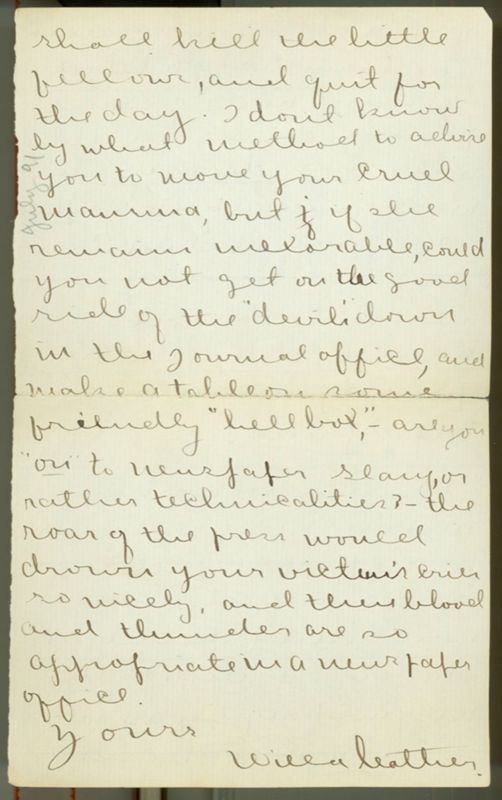 shall kill the little
fellows, and quit for
the day. I dont know
by what method to advise
you to move your cruel
mamma, but if she
remains inexorable, could
you not get on the good
side of the "devil" down
in the Journal office, and
make a table on some
friendly "hell box", - are you
"on" to newspaper slang, or
rather technicalities? - the
roar of the press would
drown your victim's cries
so nicely, and then blood
and thunder are so
appropriate in a newspaper
office.
Yours
Willa Cather.
July 91